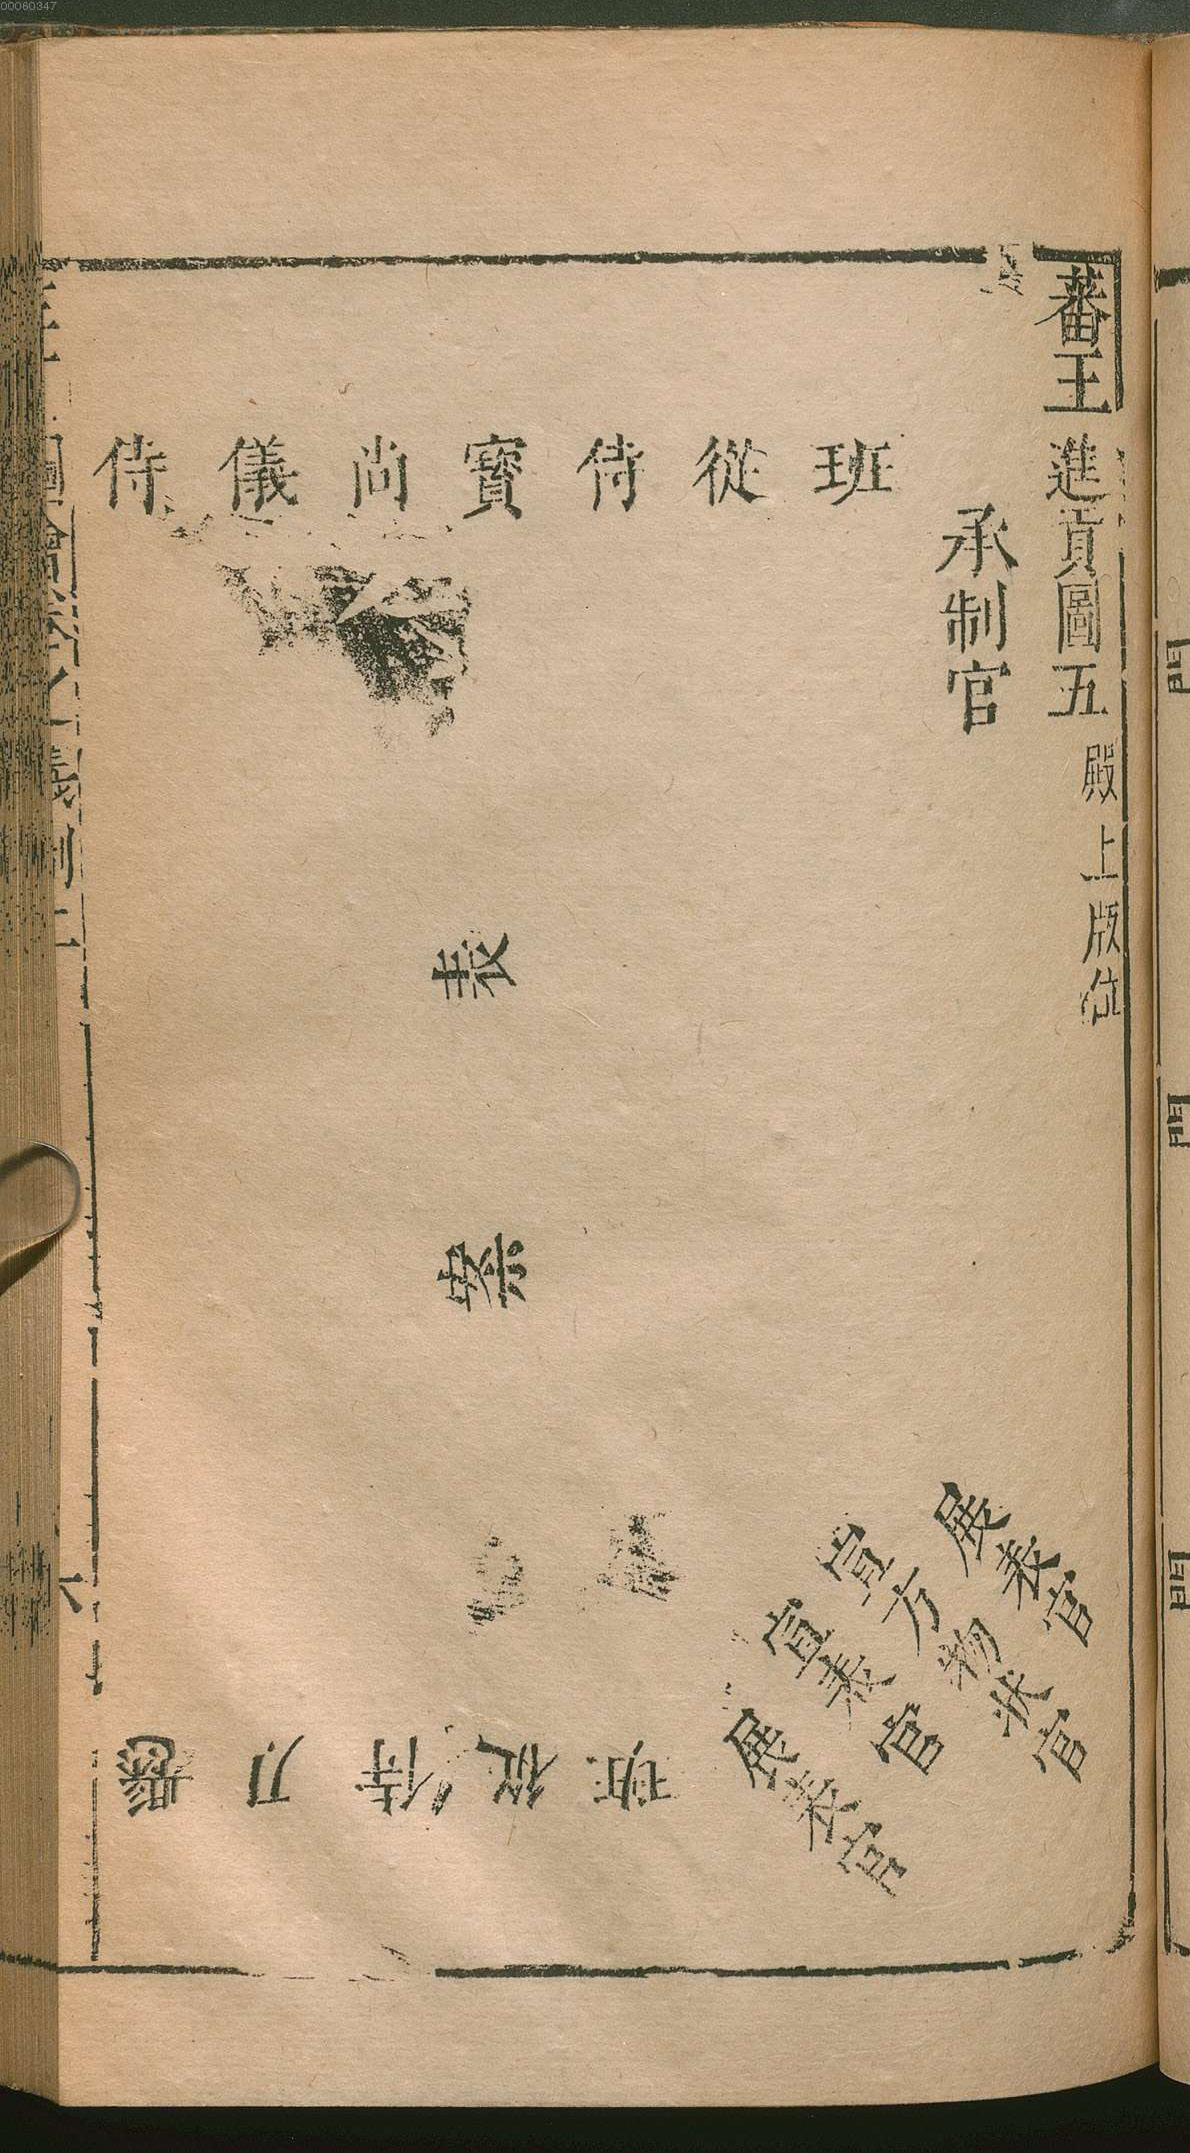 00060347
蕃王進貢圖五 殿上版位
承制官
班從侍寶尚儀侍
表
案
展表官
宣方物狀官
宣表官
展表官
班從侍刀懸
圖會
儀制二
六
門
門